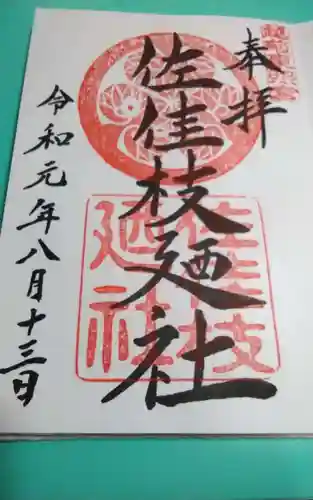 奉拝
佐佳枝廼社
令和元年八月十三日
佐佳枝
廼社